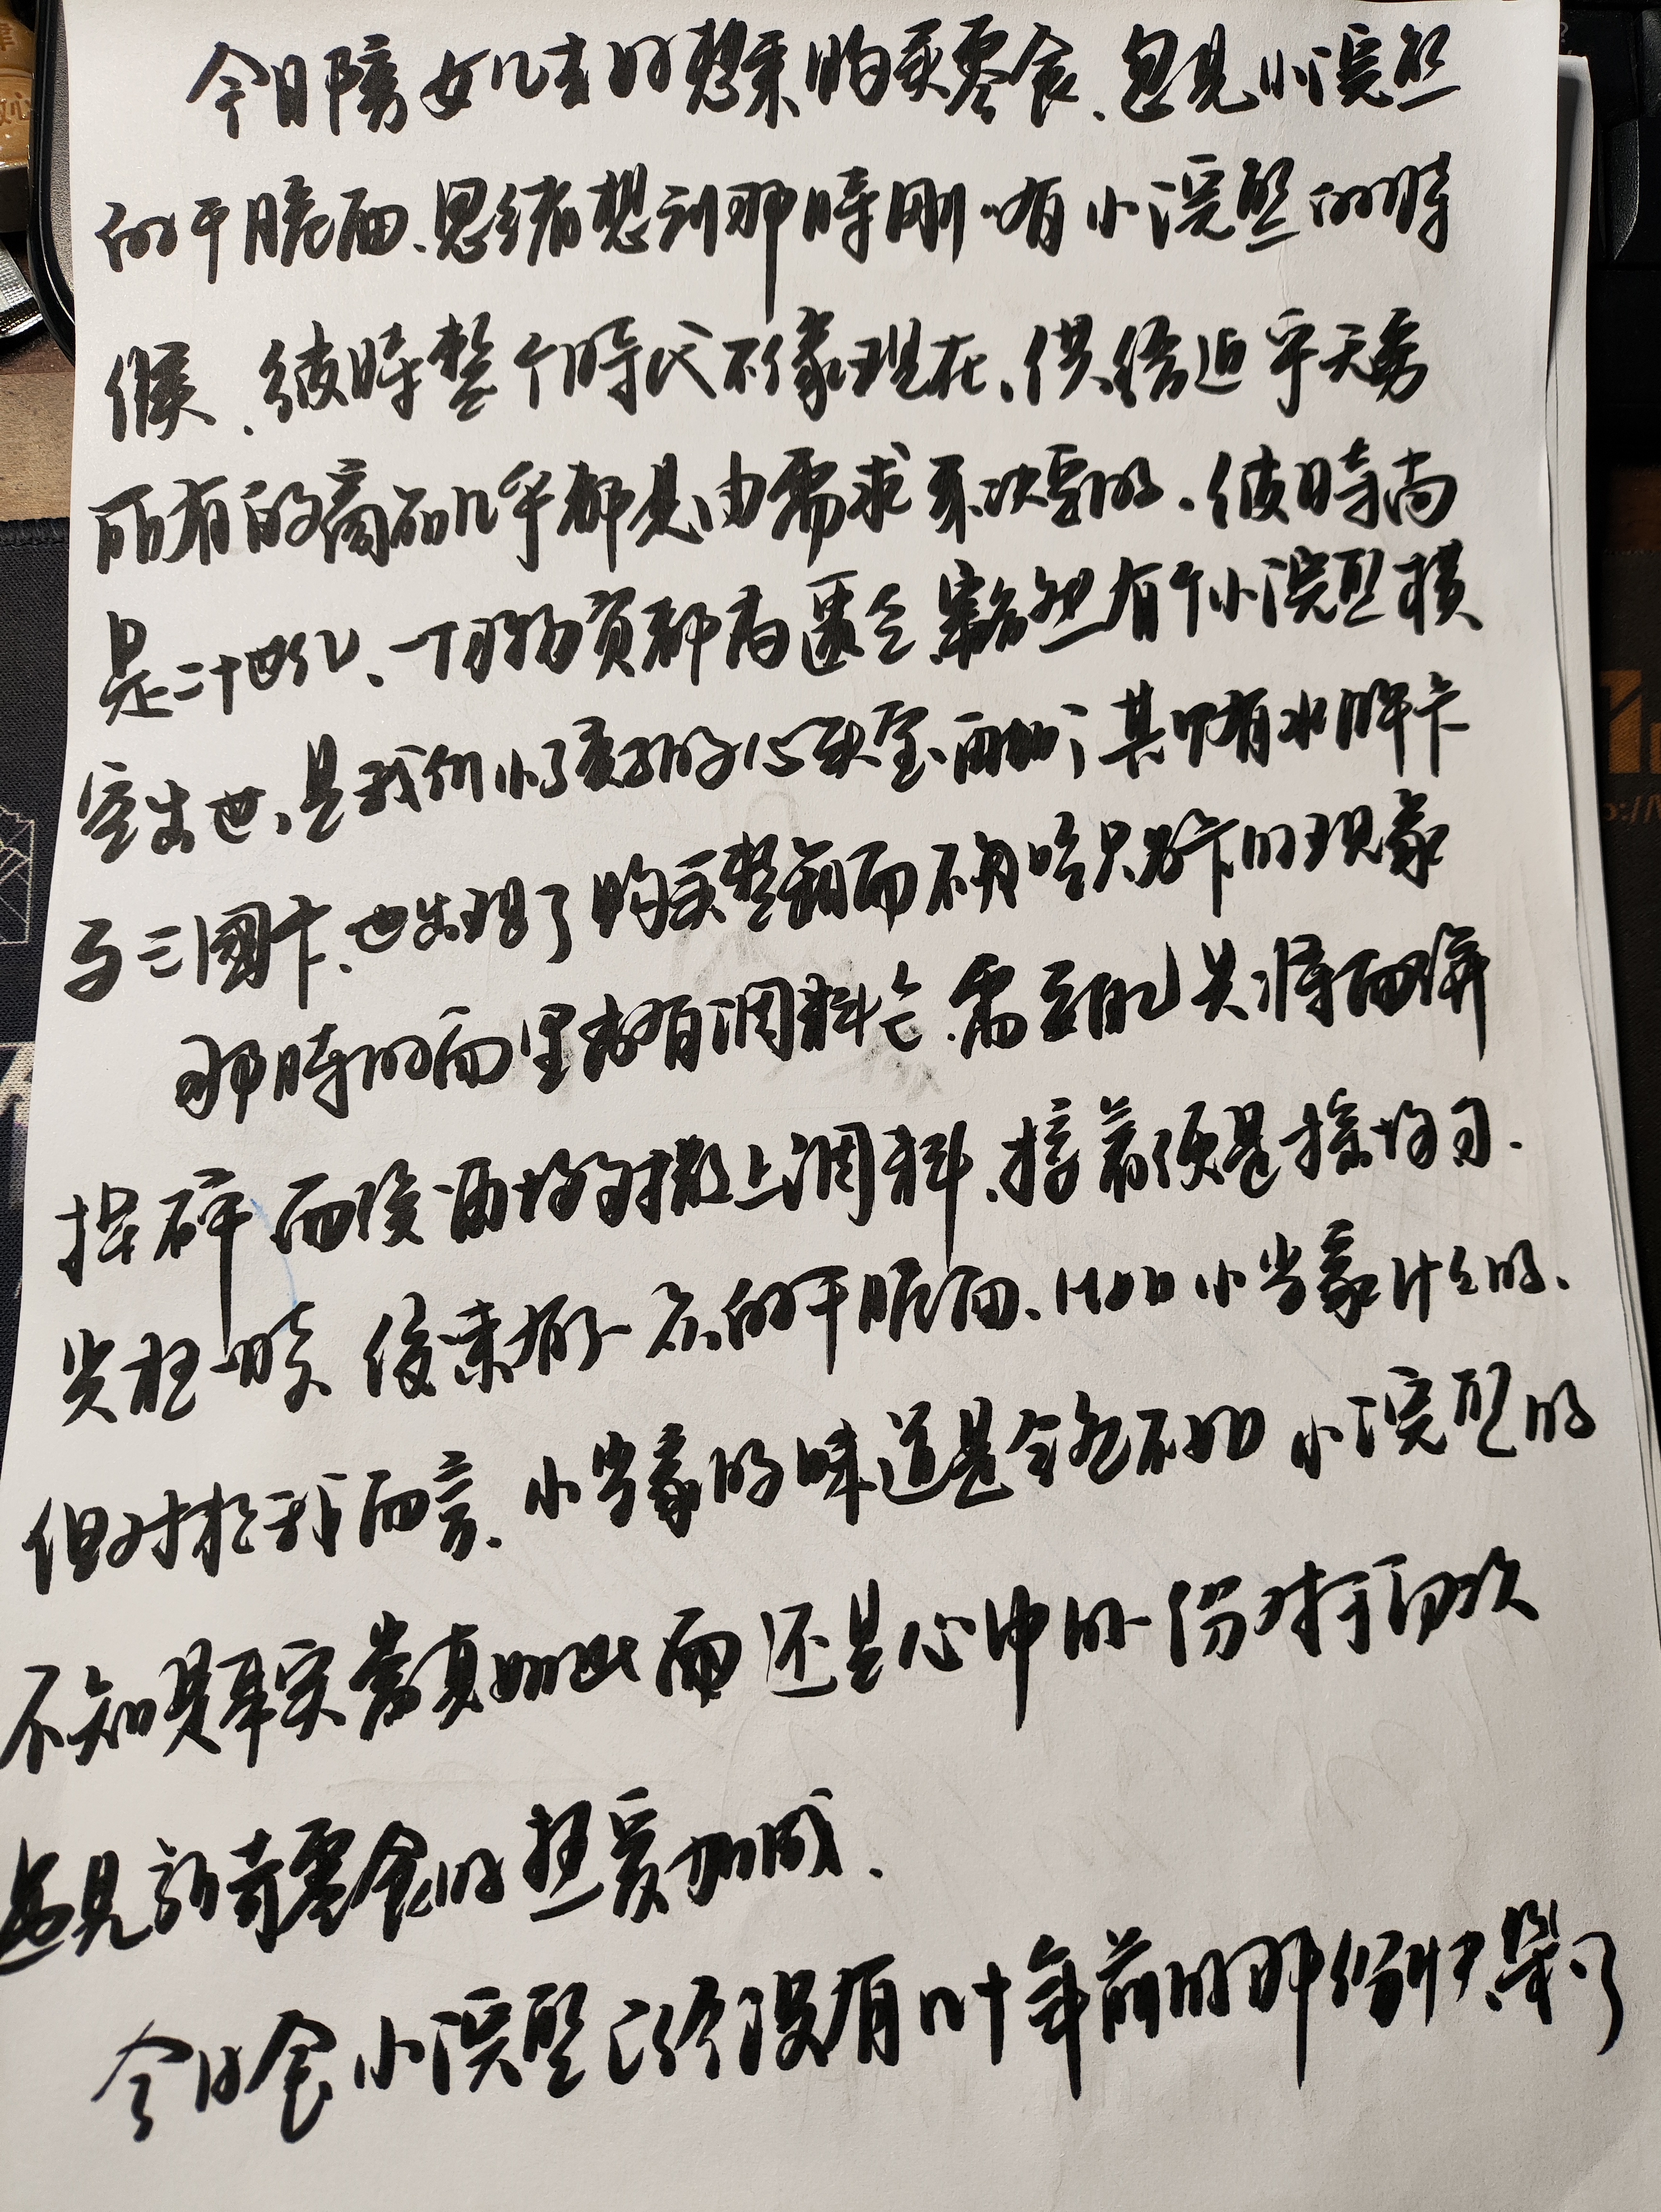 今日陪女儿去好想来购买零食、忽见小浣熊
的干脆面、思绪想到那時刚有小浣熊的時
候、彼時整个時代不像現在、供给近乎无穷
所有的商品几乎都是由需求来决定的、彼時尚
是二十世纪、一切物資都為匮乏、豁然有个小浣熊横
空出世、是我们小孩子的心头宝、再加上其中有水滸卡
与三國卡、也出現了购买整箱而不为吃只为卡的现象
那時的面里都有调料包、需要自己先將面餅
捏碎、而後再均匀撒上调料、接着便是揉均匀、
後來有了一众的干脆面、比如小当家什么的、
但对於我而言、小当家的味道是全然不如小浣熊的
不知是事实當真如此、而还是心中的一份对于初次
遇见新奇零食的热爱加成、
今日食小浣熊已然没有几十年前的那份快樂了